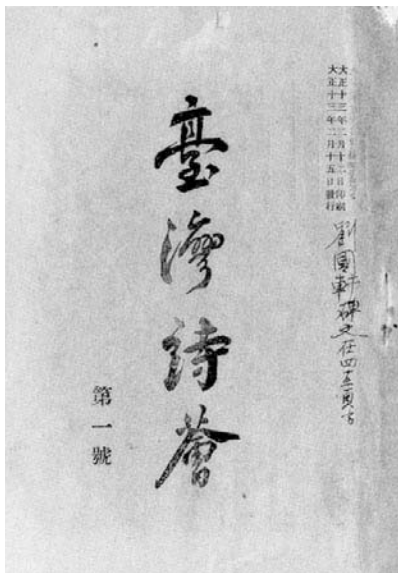 大正十三年二月十二日印刷
大正十三年二月十五日發行
劉圓軒碑文在四十五頁
臺灣詩薈
第一號